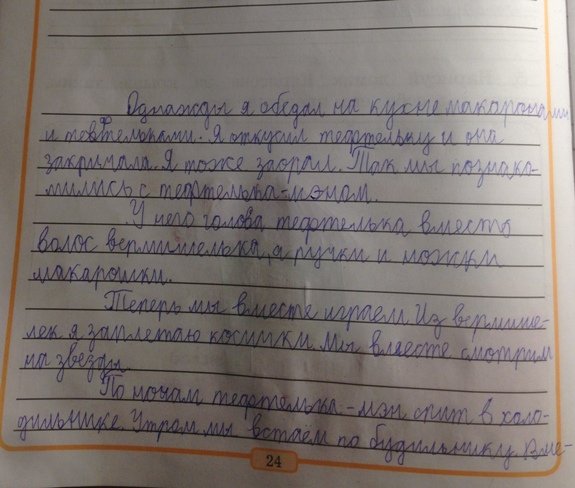 Однажды я обедал на кухне макаронами
и тевтельками. Я откусил тефтельку и она
закричала. Я тоже заорал. Так мы познако-
мились с тефтелька-мэном.
У него голова тефтелька вместо
волос вермишелька, а ручки и ножки
макарошки.
Теперь мы вместе играем. Из вермише-
лек я заплетаю косички. Мы вместе смотрим
на звезды.
По ночам тефтелька-мэн спит в холо-
дильнике. Утром мы встаём по будильнику. Вме-
24